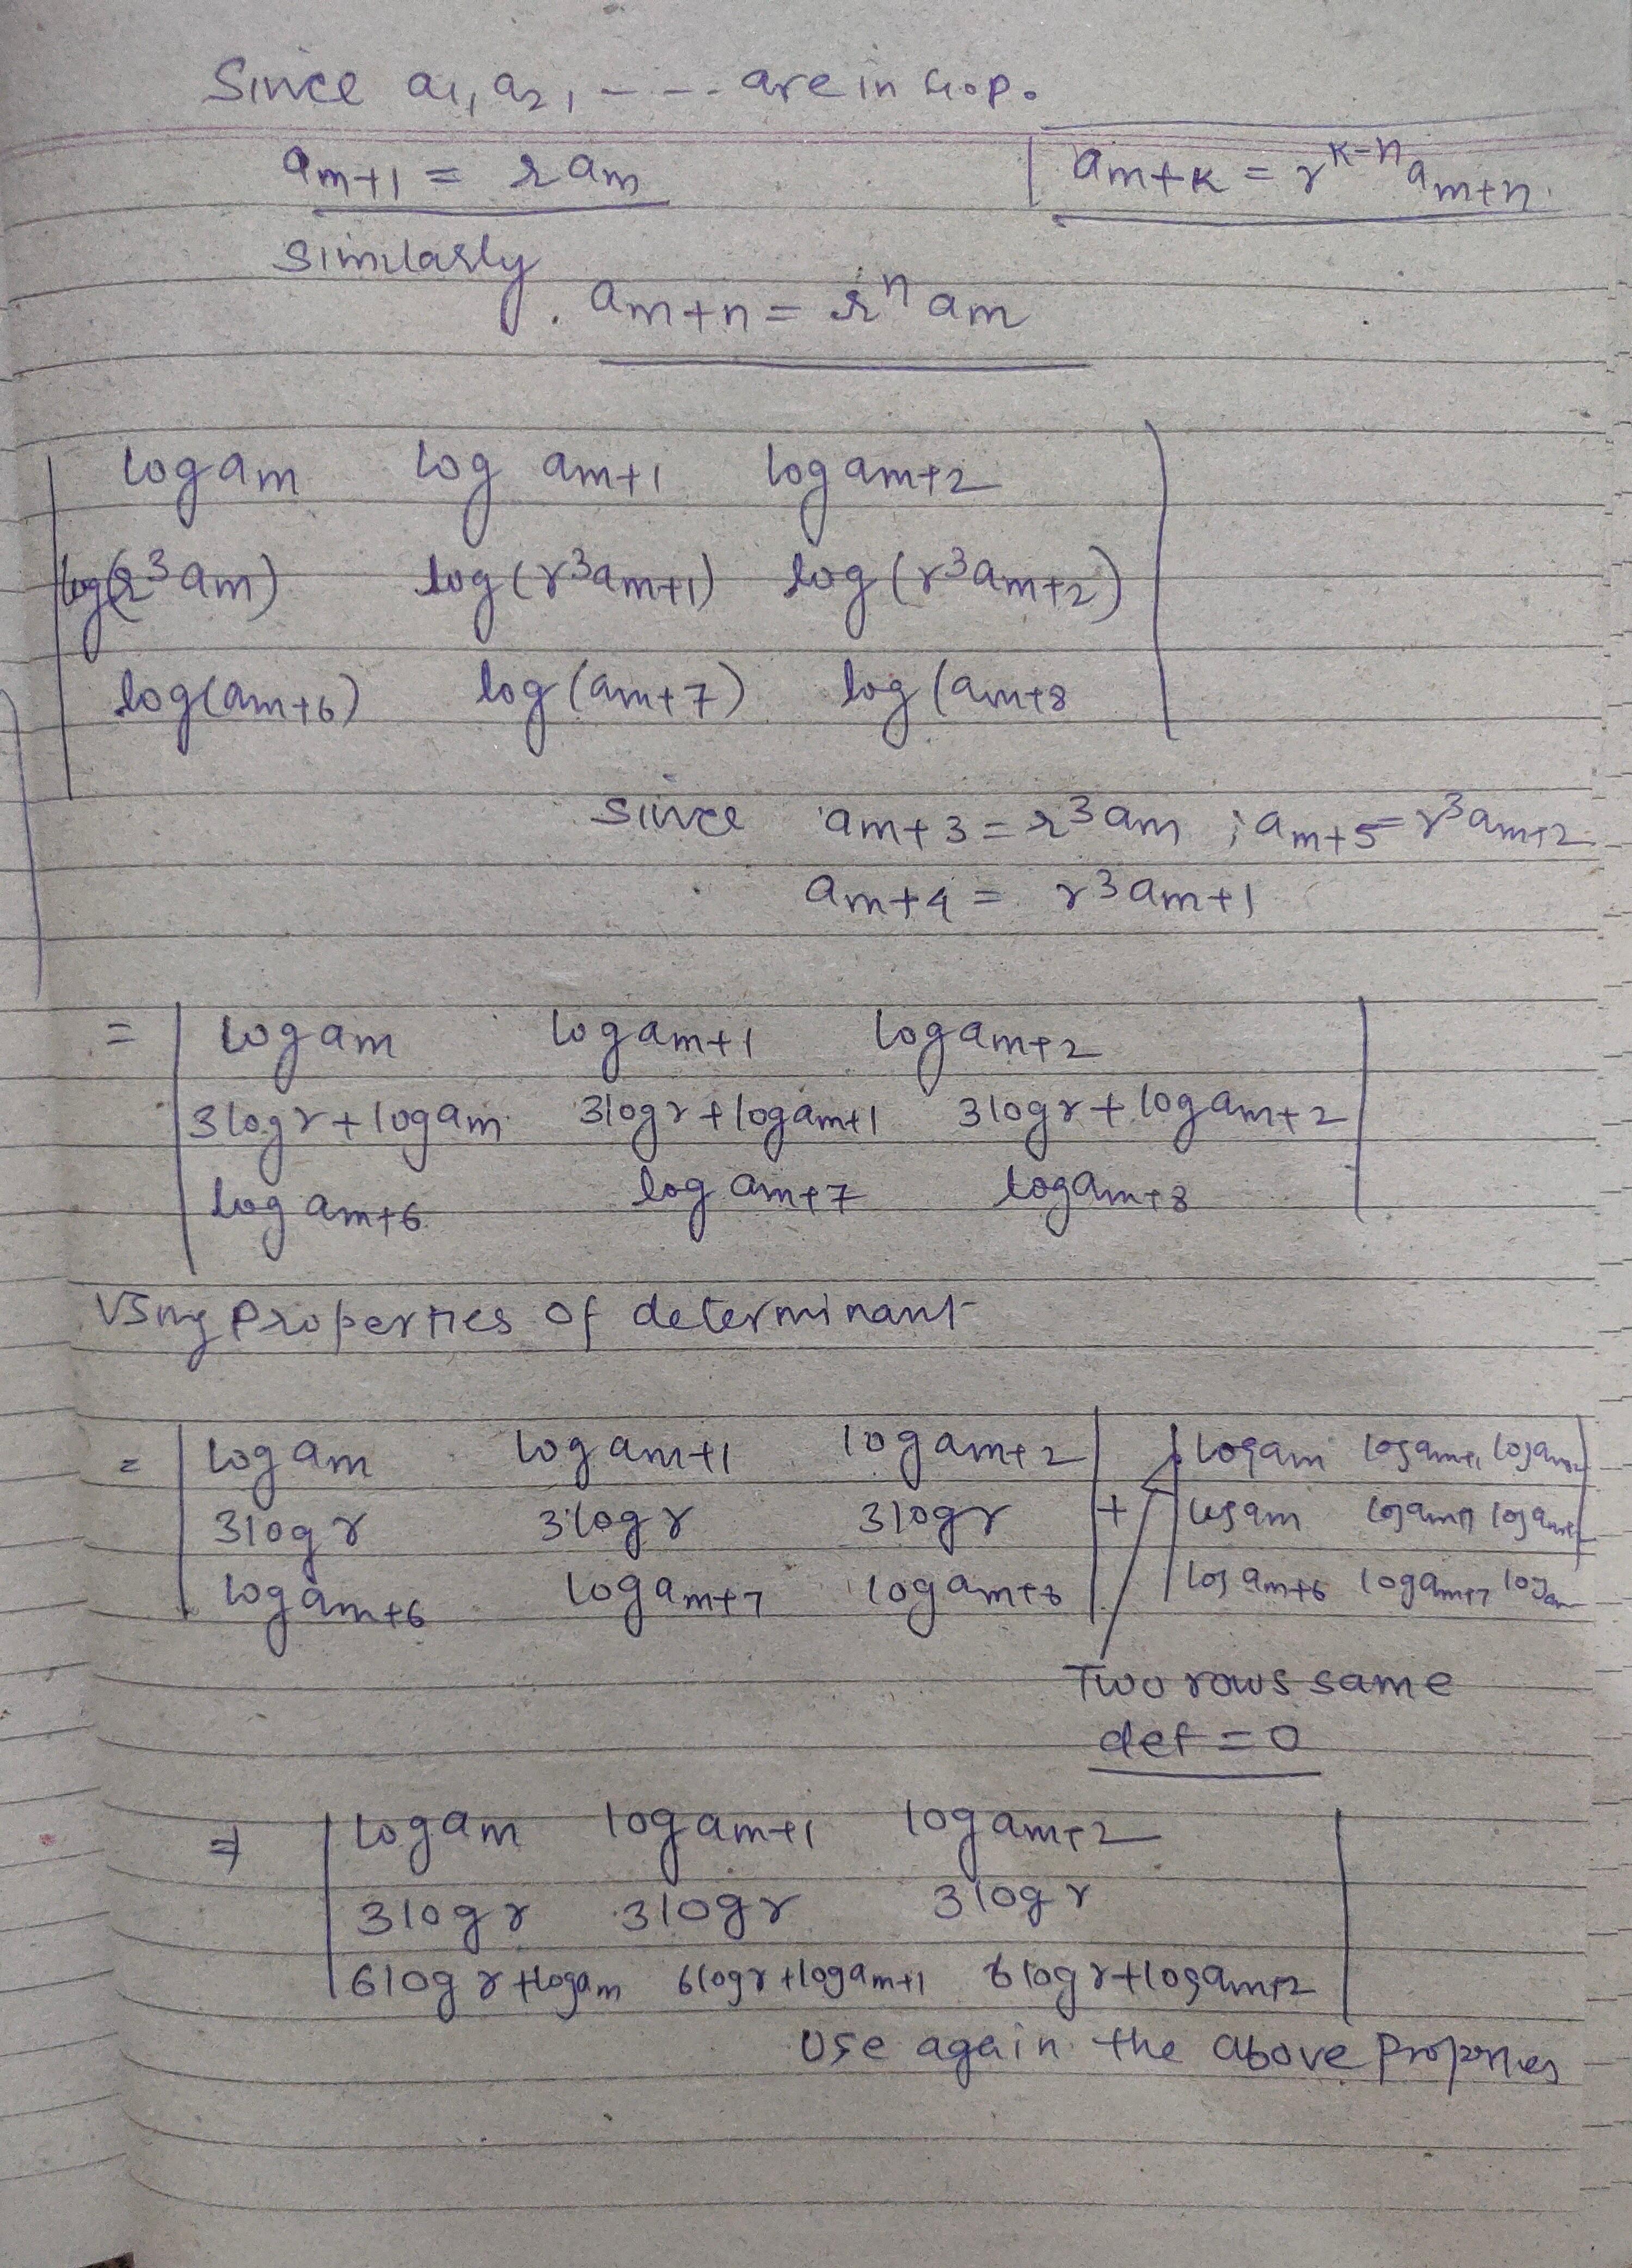 Since a1, a2, ---- are in G.P.
am+1 = r am
am+k = r^k-n am+n.
Similarly
am+n = r^n am
log am log am+1 log am+2
log(r^3 am) log(r^3 am+1) log(r^3 am+2)
log(am+6) log(am+7) log(am+8
Since am+3 = r^3 am ; am+5 = r^3 am+2
am+4 = r^3 am+1
= | log am log am+1 log am+2 |
3logr + log am 3logr + log am+1 3logr + log am+2
log am+6 log am+7 log am+8
Using Properties of determinant
= | log am log am+1 log am+2 | + | log am log am+1 log am+2 |
3logr 3logr 3logr log am log am+1 log am+2
log am+6 log am+7 log am+8 log am+6 log am+7
Two rows same
det = 0
⇒ | log am log am+1 log am+2 |
3logr 3logr 3logr
6logr + log am 6logr + log am+1 6logr + log am+2
Use again the above Properties